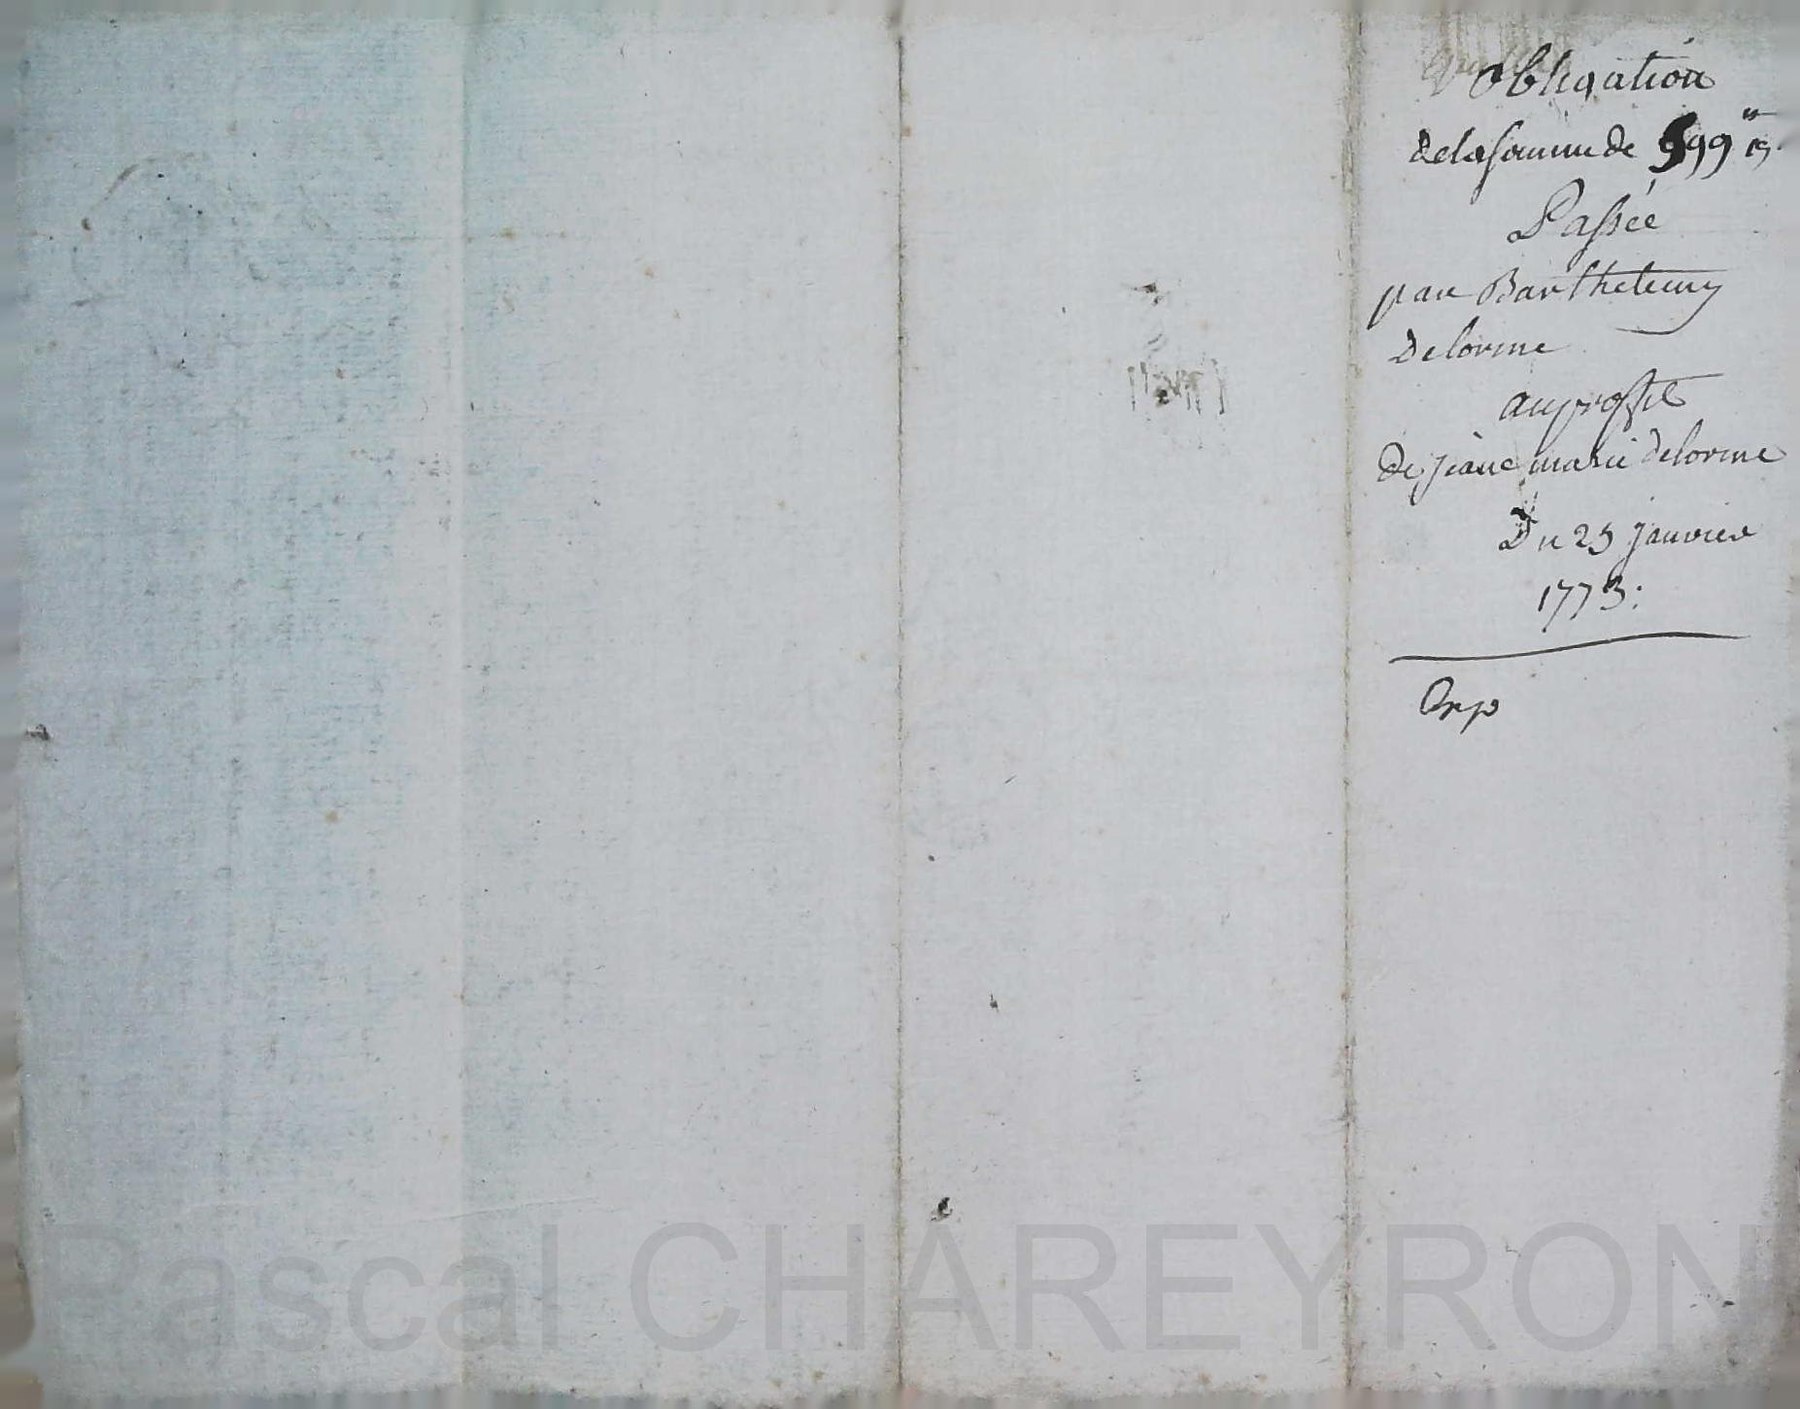 obligation
delasomme de 599 tt 19 s
Passée
par Barthelemy
Delorme
auproffit
De jeane marie delorme
Du 25 janvier
1773:
Exp
Pascal CHAREYRON